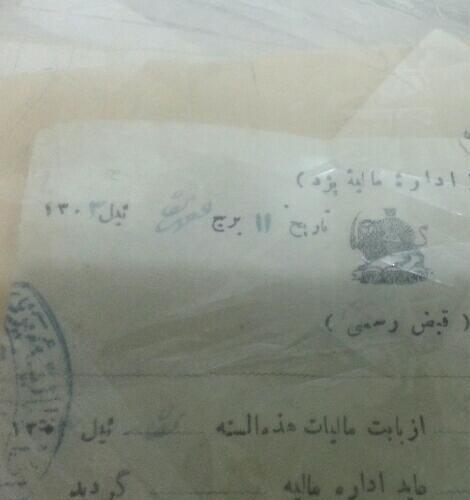 اداره مالیة یزد )
تاریخ ۱۱ برج عقرب ئیل ۱۳۰۳
( قبض رسمی )
از بابت مالیات هذه السنه ئیل ۱۳۰
عاید اداره مالیه گردید